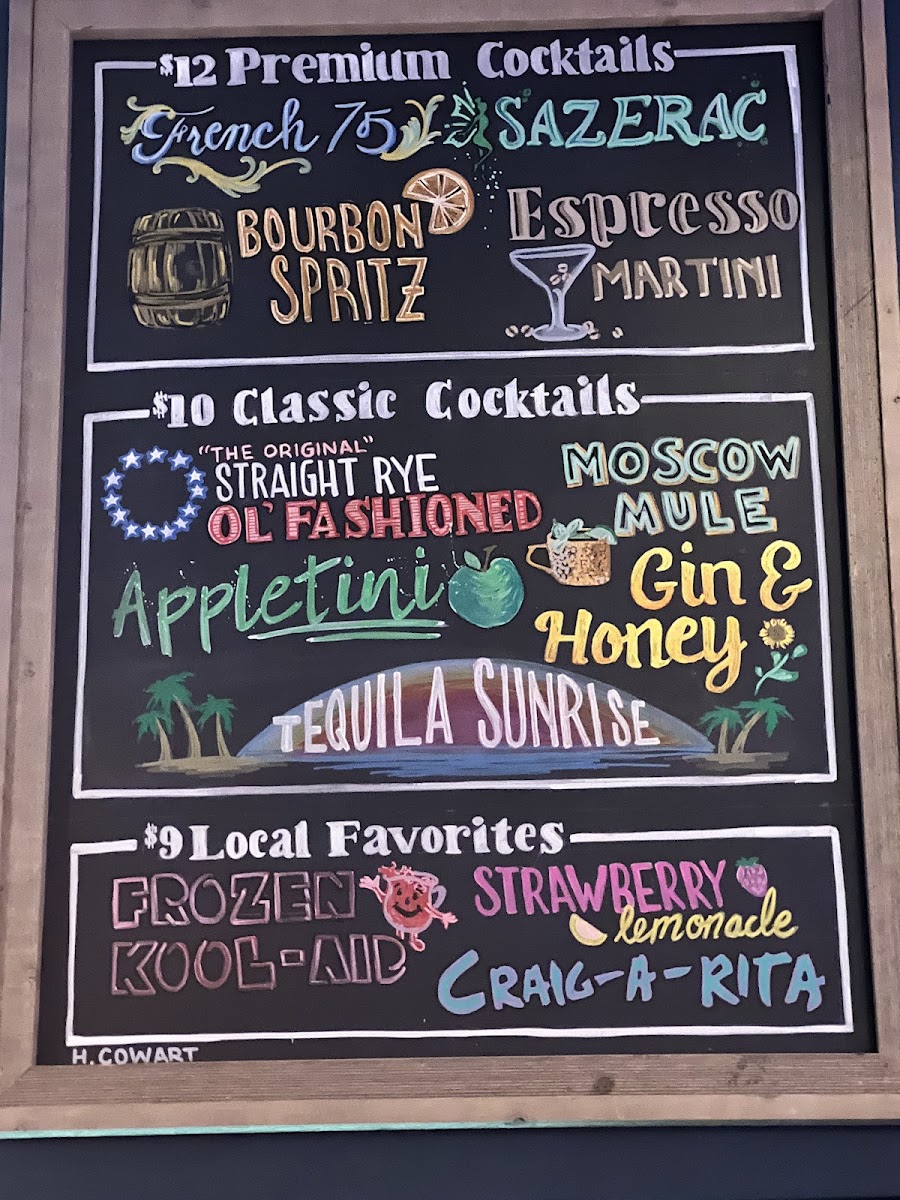 $12 Premium Cocktails
French 75
SAZERAC
BOURBON
SPRITZ
Espresso
MARTINI
$10 Classic Cocktails
"THE ORIGINAL"
STRAIGHT RYE
OL' FASHIONED
MOSCOW
MULE
Appletini
Gin &
Honey
TEQUILA SUNRISE
$9 Local Favorites
FROZEN
KOOL-AID
STRAWBERRY
lemonade
CRAIG-A-RITA
H. COWART